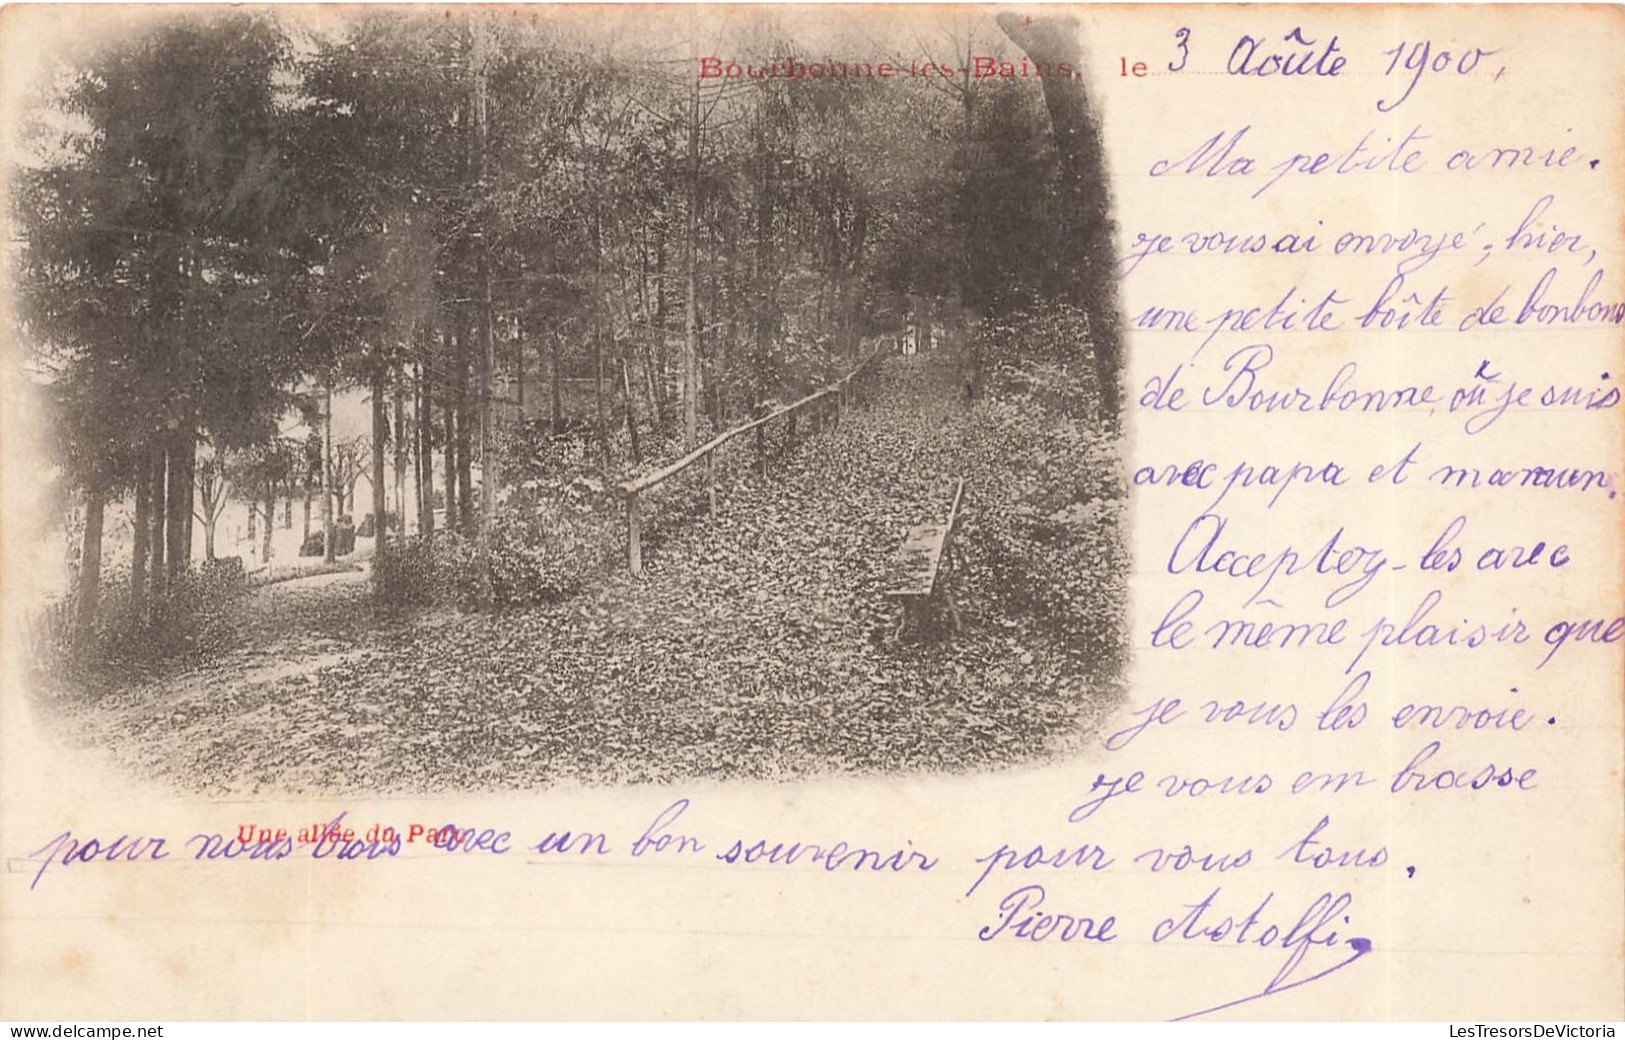 Bourbonne-les-Bains, le 3 Aoûte 1900,
Ma petite amie.
je vous ai envoyé, hier,
une petite boîte de bonbons
de Bourbonne, où je suis
avec papa et maman.
Acceptez-les avec
le même plaisir que
je vous les envoie.
je vous em brasse
Une allée du Parc
pour nous trois avec un bon souvenir pour vous tous.
Pierre Astolfi
LesTresorsDeVictoria
delcampe.net